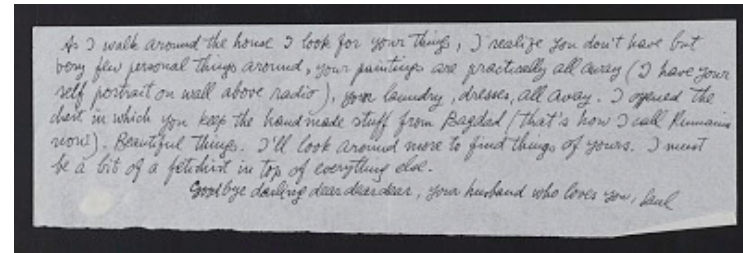 As I walk around the house I look for your things, I realize you don't have but
very few personal things around, your paintings are practically all away (I have your
self portrait on wall above radio), your laundry, dresses, all away. I opened the
chest in which you keep the handmade stuff from Bagdad (that's how I call Rumania
now). Beautiful things. I'll look around more to find things of yours. I must
be a bit of a fetishist in top of everything else.
Goodbye darling dear dear dear, your husband who loves you, Saul